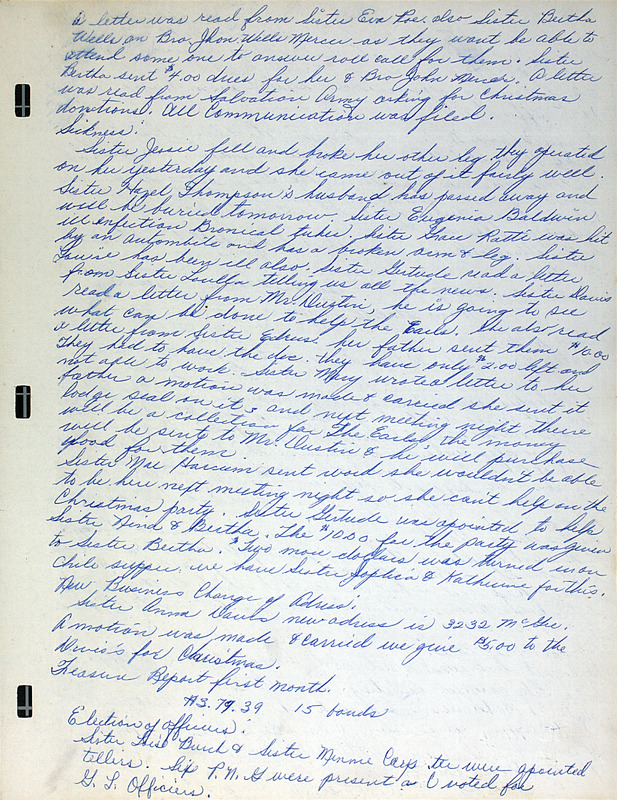 A letter was read from Sister Eva Poe. also Sister Bertha
Wells on Bro. Jhon Wells Mercer as they wont be able to
attend some one to answer roll call for them. Sister
Bertha sent $4.00 dues for her & Bro John Mercer. A letter
was read from Salvation Army asking for Christmas
donations. All Communication was filed.
Sickness:
Sister Jessie fell and broke her other leg, they operated
on her yesterday and she came out of it fairly well.
Sister Hazel Thompson's husband has passed away and
will be buried tomorrow. Sister Eugenia Baldwin
ill enfection Bronical tubes, Sister Grace Ratti was hit
by an automobile and has a broken arm & leg. Sister
Louise has been ill also. Sister Gertude read a letter
from Sister Louella telling us all the news. Sister Davis
read a letter from Mr. Dustin, he is going to see
what can be done to help the Earls. She also read
a letter from Sister her father sent them $10.00
They had to have the doc. they have only $2.00 left and
not able to work. Sister Mary wrote a letter to her
father a motion was made & carried she sent it
lodge seal on it, and next meeting night there
will be a collection for The Earles, the money
will be sent to Mr. Dustin & he will purchase
food for them
Sister Mae sent word she wouldn't be able
to be here next meeting night so she can't help on the
Christmas party. Sister Gertude was apointed to help
Sister & Bertha. The $10.00 for the party was given
to Sister Bertha. Two more dollars was turned in on
chile supper. we have Sister Sophia & Katherine for this.
New Business Change of Adress:
Sister Anna Davis new adress is 3232 McGee.
A motion was made & carried we give $5.00 to the
Davis's for Christmas.
Treasur Report first month.
$3.79.39 15 bonds
Election of officers:
Sister Burch & Sister Minnie were apointed
tellers. Six P. N. G were present & voted for
G. L. Officers.